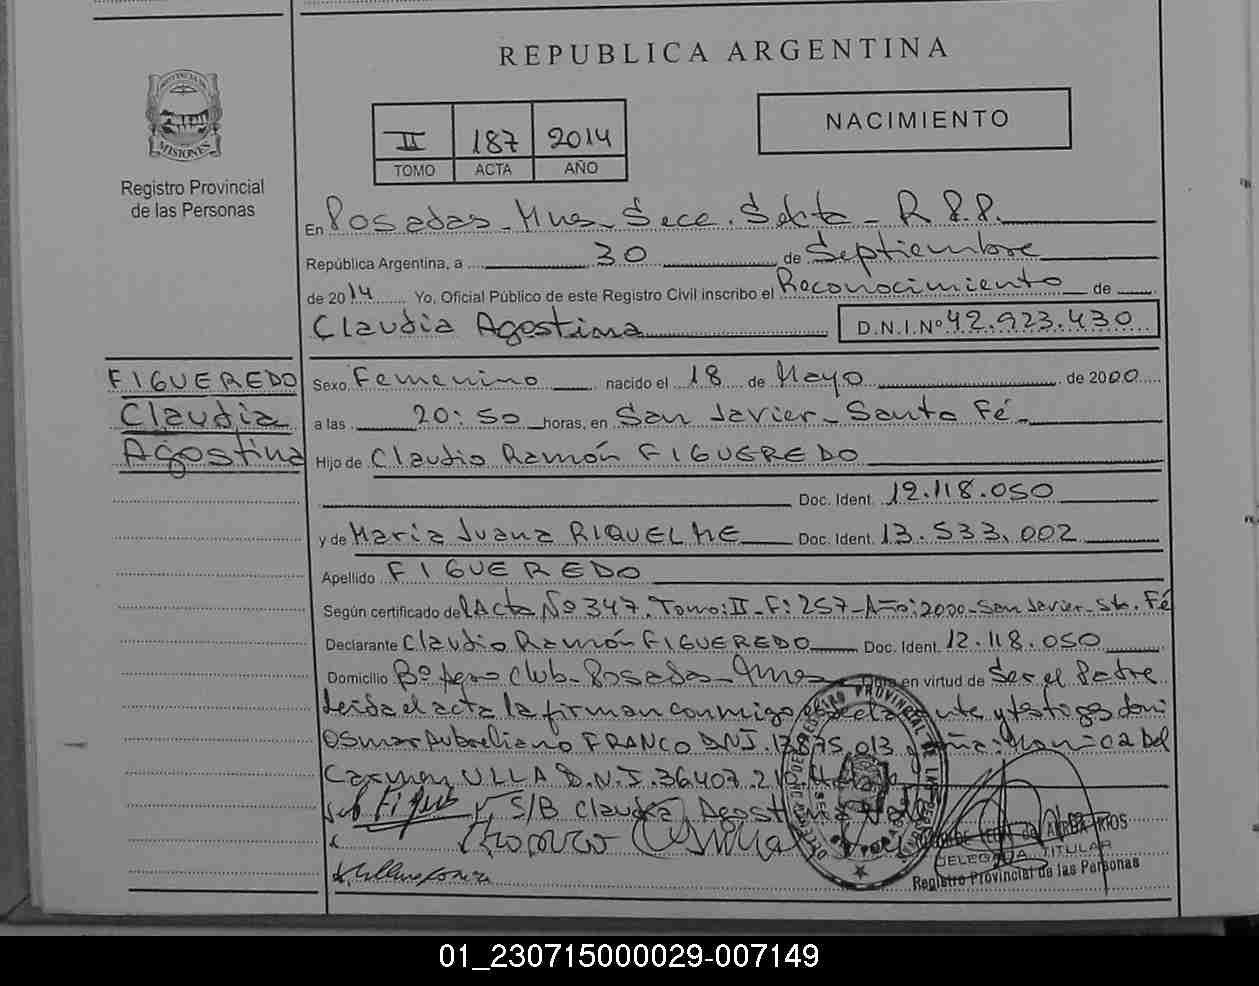 REPUBLICA ARGENTINA
PROVINCIA DE MISIONES
Registro Provincial
de las Personas
II 187 2014
TOMO ACTA AÑO
NACIMIENTO
En Posadas - Mnes Secc. Sexta - R.P.P.
República Argentina, a 30 de Septiembre
de 2014 Yo, Oficial Público de este Registro Civil inscribo el Reconocimiento de
Claudia Agostina D.N.I.Nº 42.923.430
FIGUEREDO
Claudia
Agostina
Sexo Femenino nacido el 18 de Mayo de 2000
a las 20:50 horas, en San Javier - Santa Fé -
Hijo de Claudio Ramón FIGUEREDO
Doc. Ident. 12.118.050
y de Maria Juana RIQUELME Doc. Ident. 13.533.002
Apellido FIGUEREDO
Según certificado del Acta Nº 347. Tomo: II - F: 257 - Año: 2000 - San Javier - Sta. Fé
Declarante Claudio Ramón FIGUEREDO Doc. Ident. 12.118.050
Domicilio Bº Agro Club - Posadas - Mnes en virtud de Ser el Padre
Leida el acta la firman conmigo el declarante y testigos don:
Osmar FRANCO DNI. 013 doña: Monica Del
Carmen ULLA D.N.I. 36407.21
S/B Claudia Agostina Vale
Franco Osmar
DELEGADA TITULAR
Registro Provincial de las Personas
01_230715000029-007149